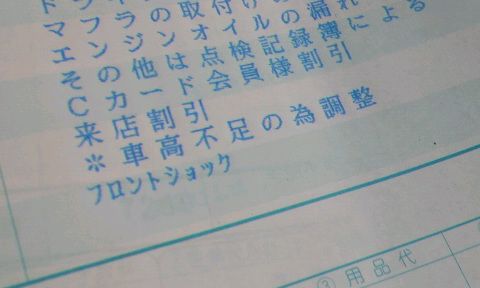 マフラーの取付け
エンジンオイルの漏れ
その他は点検記録簿による
Cカード会員様割引
来店割引
※車高不足の為調整
フロントショック
③用品代